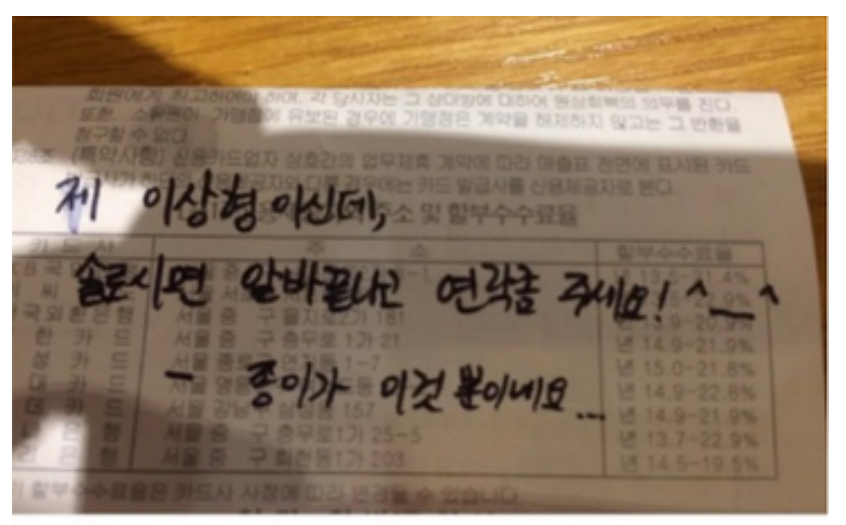 회원에게 최고하여야 하며, 각 당사자는 그 상대방에 대하여 원상회복의 의무를 진다.
또한, 소유권이 가맹점에 유보된 경우에 가맹점은 계약을 해제하지 않고는 그 반환을
청구할 수 없다.
(특약사항) 신용카드업자 상호간의 업무제휴 계약에 따라 매출표 전면에 표시된 카드
경우에는 카드 발급사를 신용제공자로 본다.
제 이상형이신데,
주소 및 할부수수료율
카 드 사 주 소 할부수수료율
솔로시면 알바끝나고 연락좀 주세요! ^__^
국외환은행 서울 중 구 을지로2가 181
한 카 드 서울 중 구 충무로 1가 21 년 14.9-21.9%
성 카 드 서울 1-7 년 15.0-21.8%
- 종이가 이것 뿐이네요...
대 카 드 서울 년 14.9-22.8%
데 카 드 서울 강남 157 년 14.9-21.9%
은 행 서울 중 구 충무로1가 25-5 년 13.7-22.9%
은 행 서울 중 구 회현동1가 203 년 14.5-19.5%
할부수수료율은 카드사 사정에 따라 변경될 수 있습니다.